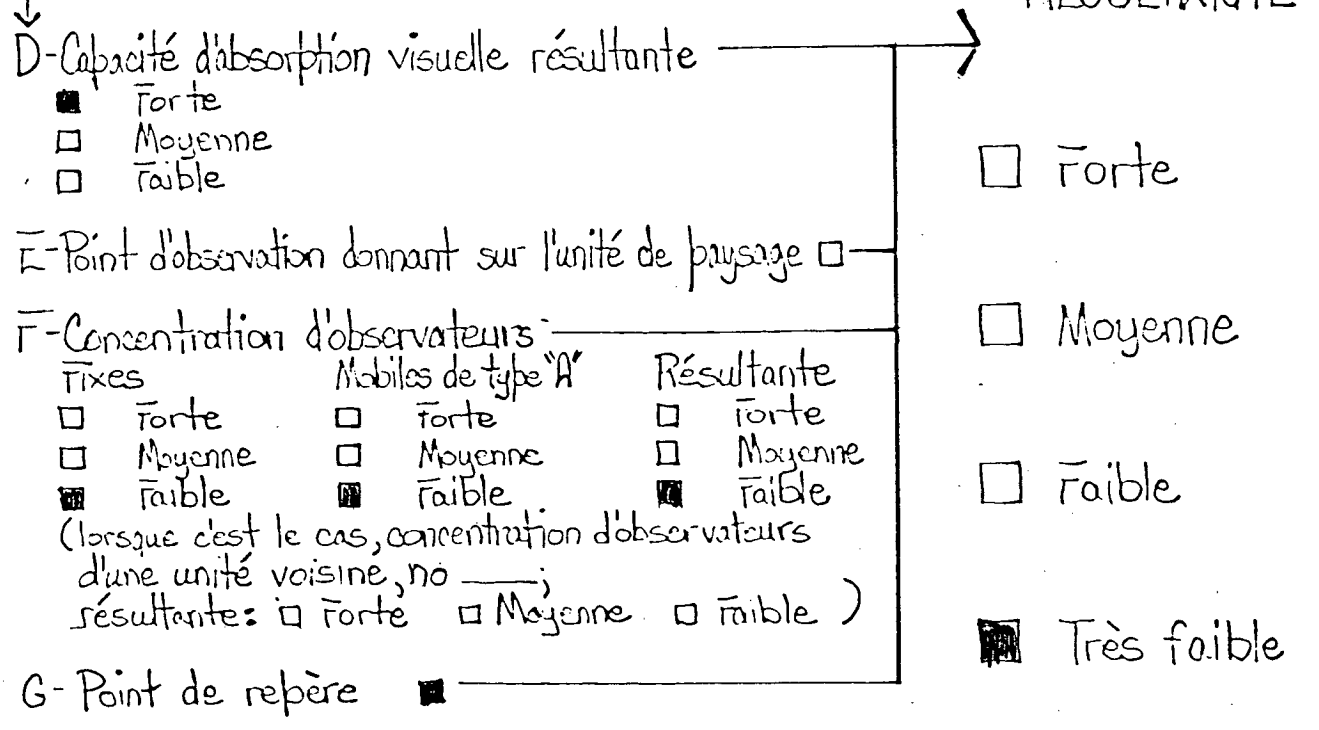 D-Capacité d'absorption visuelle résultante
■ Forte
□ Moyenne
□ Faible
E-Point d'observation donnant sur l'unité de paysage □
F-Concentration d'observateurs
Fixes Mobiles de type "A" Résultante
□ Forte □ Forte □ Forte
□ Moyenne □ Moyenne □ Moyenne
■ Faible ■ Faible ■ Faible
(lorsque c'est le cas, concentration d'observateurs
d'une unité voisine, no ____;
résultante: □ Forte □ Moyenne □ Faible )
G- Point de repère ■
□ Forte
□ Moyenne
□ Faible
■ Très faible